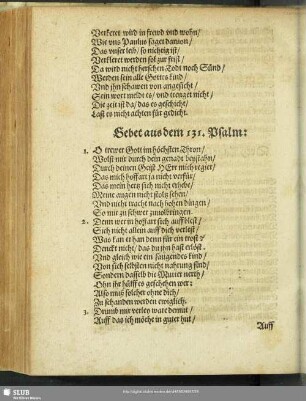 Verkeret wird in freud vnd wohn/
Wie vns Paulus saget daruon/
Das vnser leib/ so nichtig ist/
Verkleret werden sol zur frist/
Da wird nicht herschen Todt noch Sünd/
Werden sein alle Gottes kind/
Vnd jhn schawen von angesicht/
Sein wort meldt es/ vnd treuget nicht/
Die zeit ist da/ das es geschicht/
Last es nicht achten für gedicht.
Gebet aus dem 131. Psalm:
1. O trewer Gott im höchsten Thron/
Wolst mir durch dein genad beystahn/
Durch deinen Geist HErr mich regier/
Das mich hoffart ja nicht verfür/
Das mein hertz sich nicht erhebe/
Meine augen nicht stoltz sehen/
Vnd nicht tracht nach hohen dingen/
So mir zu schwer zuuolbringen.
2. Denn wer in hoffart sich auffblest/
Sich nicht allein auff dich verlest/
Was kan er han denn für ein trost?
Denckt nicht/ das du jhn hast erlöst.
Vnd gleich wie ein saugendes kind/
Von sich selbsten nicht nahrung find/
Sondern dasselb die Mutter nerth/
Ohn jhr hülff es geschehen wer:
Also muß solcher ohne dich/
Zu schanden werden ewiglich.
3. Drumb mir verley ware demut/
Auff das ich möcht in guter hut/
Auff
SLUB